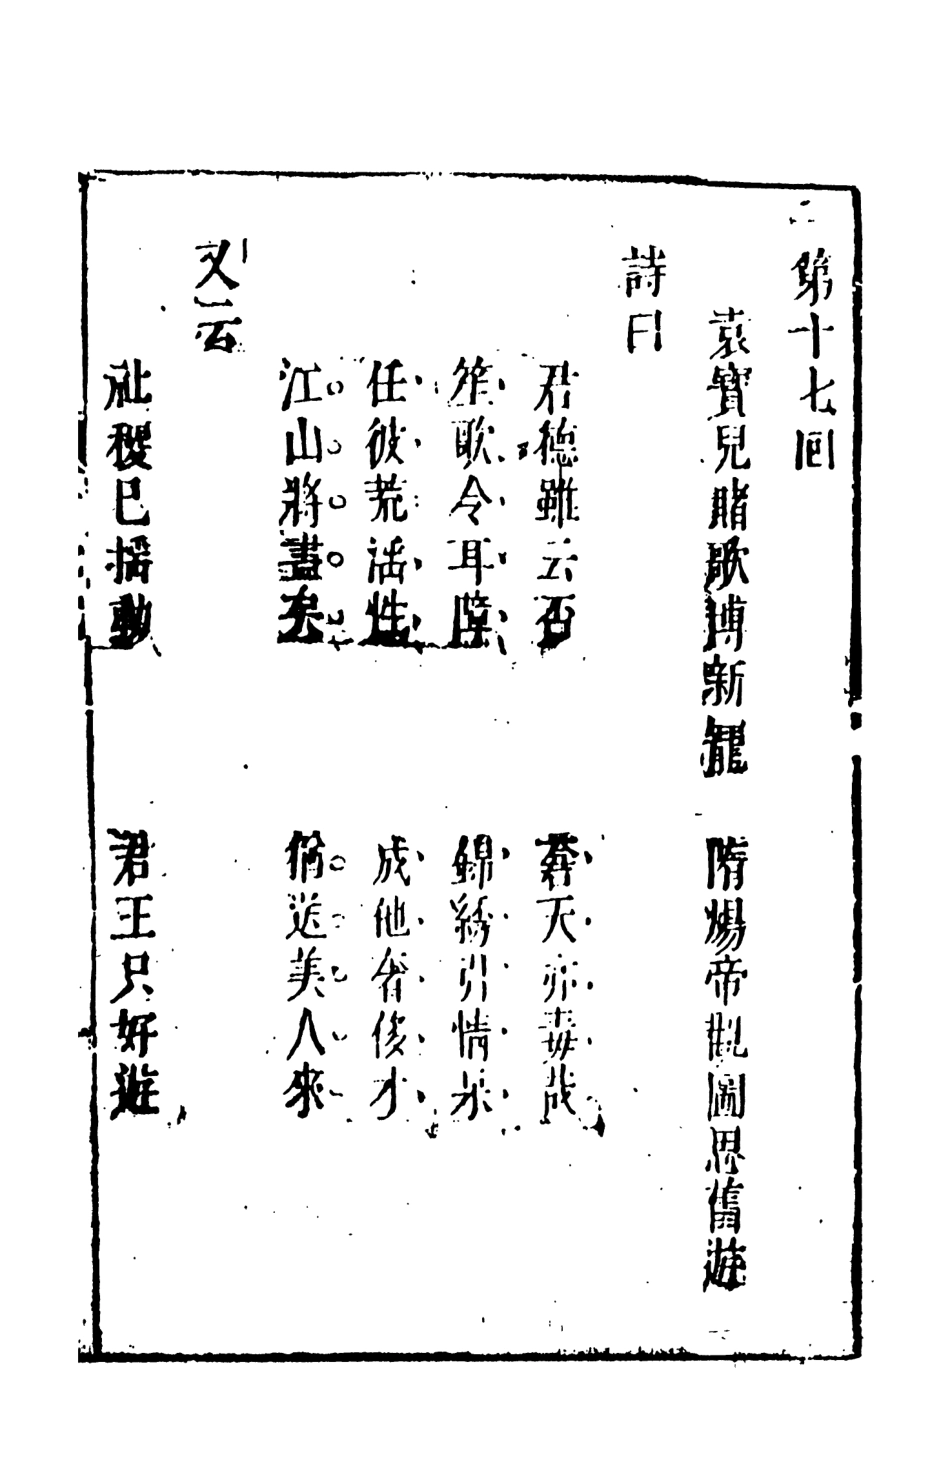 第十七回
袁寶兒賭歌博新寵　隋煬帝觀圖思舊遊
詩曰
君德雖云否　蒼天亦毒哉
笙歌令耳障　錦綉引情呆
任彼荒淫性　成他奢侈才
江山將盡矣　猶送美人來
又云
社稷已揺動　君王只好遊